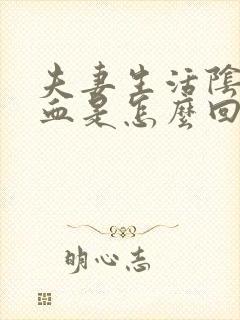 夫妻生活陰
血是怎麼回
明心志